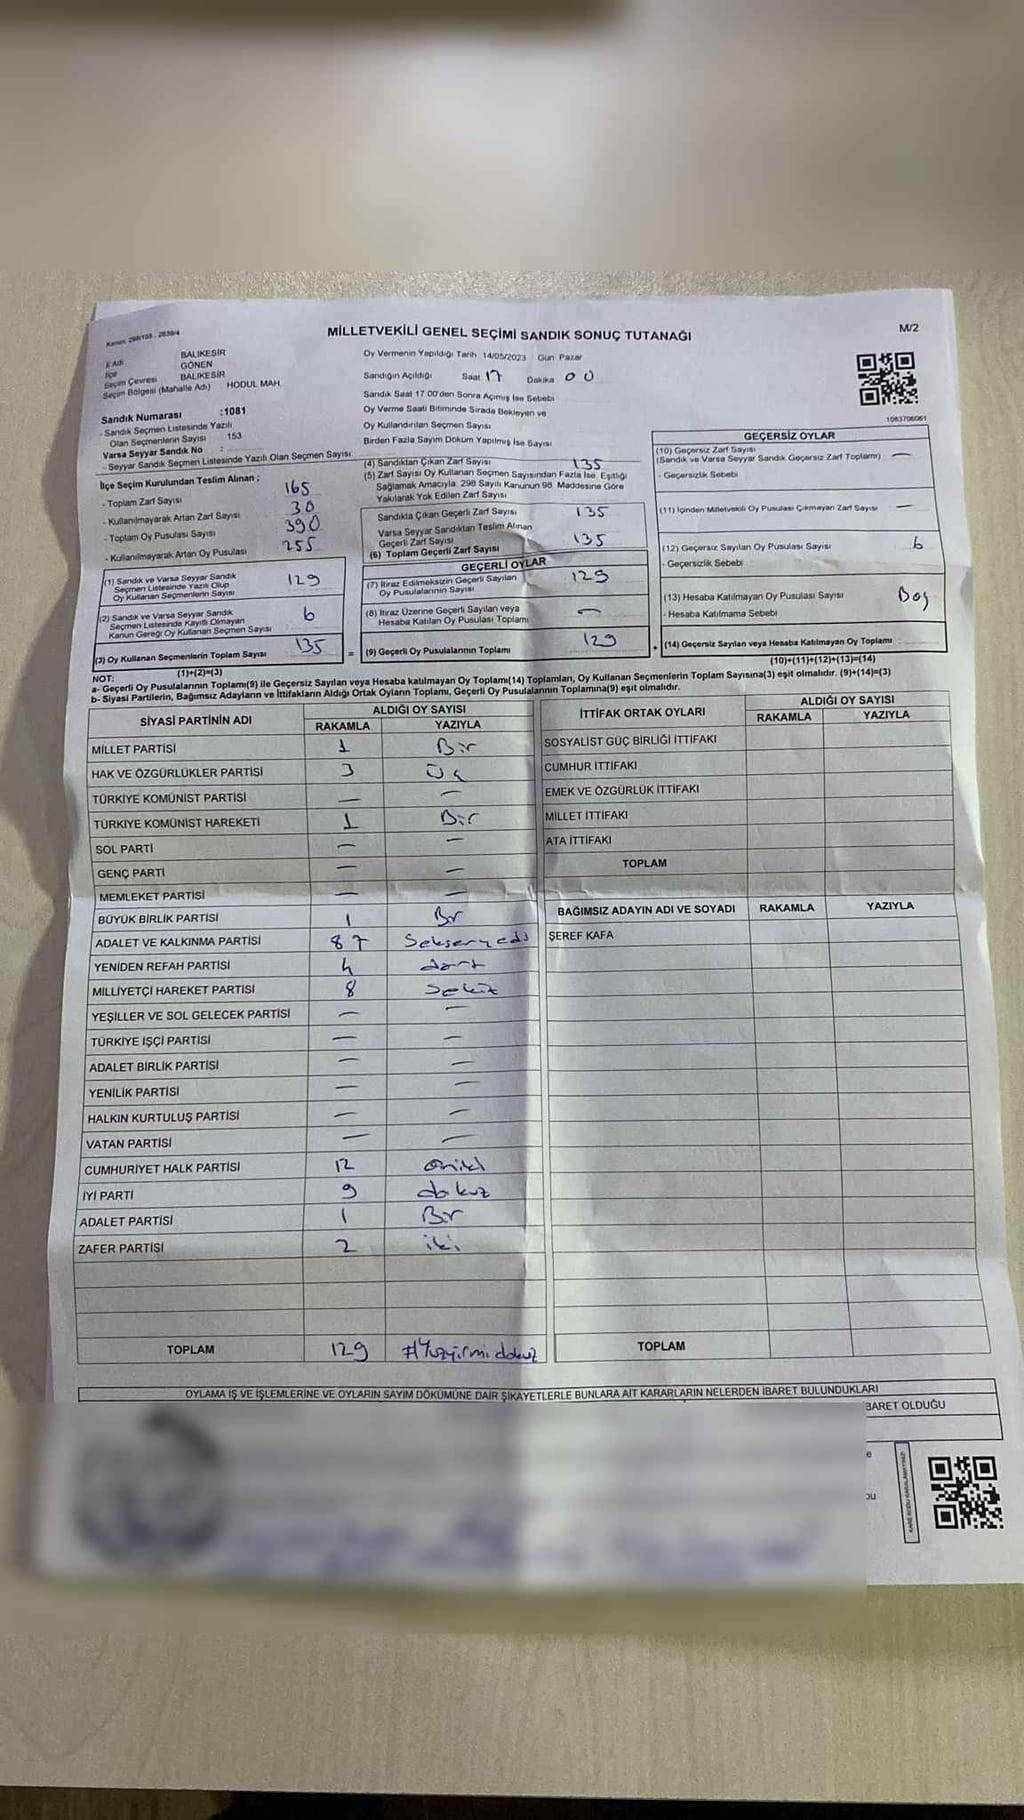 Kanun: 298/105 , 2839/4
MİLLETVEKİLİ GENEL SEÇİMİ SANDIK SONUÇ TUTANAĞI
M/2
İl Adı BALIKESİR
İlçe GÖNEN
Seçim Çevresi BALIKESİR
Seçim Bölgesi (Mahalle Adı) HODUL MAH.
Oy Vermenin Yapıldığı Tarih 14/05/2023 Gün Pazar
Sandığın Açıldığı Saat 17 Dakika 00
Sandık Saat 17.00'den Sonra Açımış İse Sebebi
Oy Verme Saati Bitiminde Sırada Bekleyen ve
Oy Kullandırılan Seçmen Sayısı
Birden Fazla Sayım Döküm Yapılmış İse Sayısı
1083706061
Sandık Numarası :1081
- Sandık Seçmen Listesinde Yazılı
Olan Seçmenlerin Sayısı 153
Varsa Seyyar Sandık No :
- Seyyar Sandık Seçmen Listesinde Yazılı Olan Seçmen Sayısı:
İlçe Seçim Kurulundan Teslim Alınan ;
- Toplam Zarf Sayısı 165
- Kullanılmayarak Artan Zarf Sayısı 30
- Toplam Oy Pusulası Sayısı 390
- Kullanılmayarak Artan Oy Pusulası 255
(1) Sandık ve Varsa Seyyar Sandık
Seçmen Listesinde Yazılı Olup
Oy Kullanan Seçmenlerin Sayısı 129
(2) Sandık ve Varsa Seyyar Sandık
Seçmen Listesinde Kayıtlı Olmayan
Kanun Gereği Oy Kullanan Seçmen Sayısı 6
(3) Oy Kullanan Seçmenlerin Toplam Sayısı 135
(1)+(2)=(3)
(4) Sandıktan Çıkan Zarf Sayısı 135
(5) Zarf Sayısı Oy Kullanan Seçmen Sayısından Fazla İse, Eşitliği
Sağlamak Amacıyla; 298 Sayılı Kanunun 98. Maddesine Göre
Yakılarak Yok Edilen Zarf Sayısı
Sandıkta Çıkan Geçerli Zarf Sayısı 135
Varsa Seyyar Sandıktan Teslim Alınan
Geçerli Zarf Sayısı
(6) Toplam Geçerli Zarf Sayısı 135
GEÇERLİ OYLAR
(7) İtiraz Edilmeksizin Geçerli Sayılan
Oy Pusulalarının Sayısı 129
(8) İtiraz Üzerine Geçerli Sayılan veya
Hesaba Katılan Oy Pusulası Toplamı —
= (9) Geçerli Oy Pusulalarının Toplamı 129
GEÇERSİZ OYLAR
(10) Geçersiz Zarf Sayısı
(Sandık ve Varsa Seyyar Sandık Geçersiz Zarf Toplamı) —
- Geçersizlik Sebebi
(11) İçinden Milletvekili Oy Pusulası Çıkmayan Zarf Sayısı —
(12) Geçersiz Sayılan Oy Pusulası Sayısı 6
- Geçersizlik Sebebi
(13) Hesaba Katılmayan Oy Pusulası Sayısı Boş
- Hesaba Katılmama Sebebi
+ (14) Geçersiz Sayılan veya Hesaba Katılmayan Oy Toplamı :
(10)+(11)+(12)+(13)=(14)
NOT:
a- Geçerli Oy Pusulalarının Toplamı(9) ile Geçersiz Sayılan veya Hesaba katılmayan Oy Toplamı(14) Toplamları, Oy Kullanan Seçmenlerin Toplam Sayısına(3) eşit olmalıdır. (9)+(14)=(3)
b- Siyasi Partilerin, Bağımsız Adayların ve İttifakların Aldığı Ortak Oyların Toplamı, Geçerli Oy Pusulalarının Toplamına(9) eşit olmalıdır.
SİYASİ PARTİNİN ADI ALDIĞI OY SAYISI
RAKAMLA YAZIYLA
MİLLET PARTİSİ 1 Bir
HAK VE ÖZGÜRLÜKLER PARTİSİ 3 Üç
TÜRKİYE KOMÜNİST PARTİSİ — —
TÜRKİYE KOMÜNİST HAREKETİ 1 Bir
SOL PARTİ — —
GENÇ PARTİ — —
MEMLEKET PARTİSİ — —
BÜYÜK BİRLİK PARTİSİ 1 Bir
ADALET VE KALKINMA PARTİSİ 87 Seksenyedi
YENİDEN REFAH PARTİSİ 4 dört
MİLLİYETÇİ HAREKET PARTİSİ 8 Sekiz
YEŞİLLER VE SOL GELECEK PARTİSİ — —
TÜRKİYE İŞÇİ PARTİSİ — —
ADALET BİRLİK PARTİSİ — —
YENİLİK PARTİSİ — —
HALKIN KURTULUŞ PARTİSİ — —
VATAN PARTİSİ — —
CUMHURİYET HALK PARTİSİ 12 oniki
İYİ PARTİ 9 dokuz
ADALET PARTİSİ 1 Bir
ZAFER PARTİSİ 2 iki
TOPLAM 129 #Yüzyirmidokuz
İTTİFAK ORTAK OYLARI ALDIĞI OY SAYISI
RAKAMLA YAZIYLA
SOSYALİST GÜÇ BİRLİĞİ İTTİFAKI
CUMHUR İTTİFAKI
EMEK VE ÖZGÜRLÜK İTTİFAKI
MİLLET İTTİFAKI
ATA İTTİFAKI
TOPLAM
BAĞIMSIZ ADAYIN ADI VE SOYADI RAKAMLA YAZIYLA
ŞEREF KAFA
TOPLAM
OYLAMA İŞ VE İŞLEMLERİNE VE OYLARIN SAYIM DÖKÜMÜNE DAİR ŞİKAYETLERLE BUNLARA AİT KARARLARIN NELERDEN İBARET BULUNDUKLARI
BARET OLDUĞU